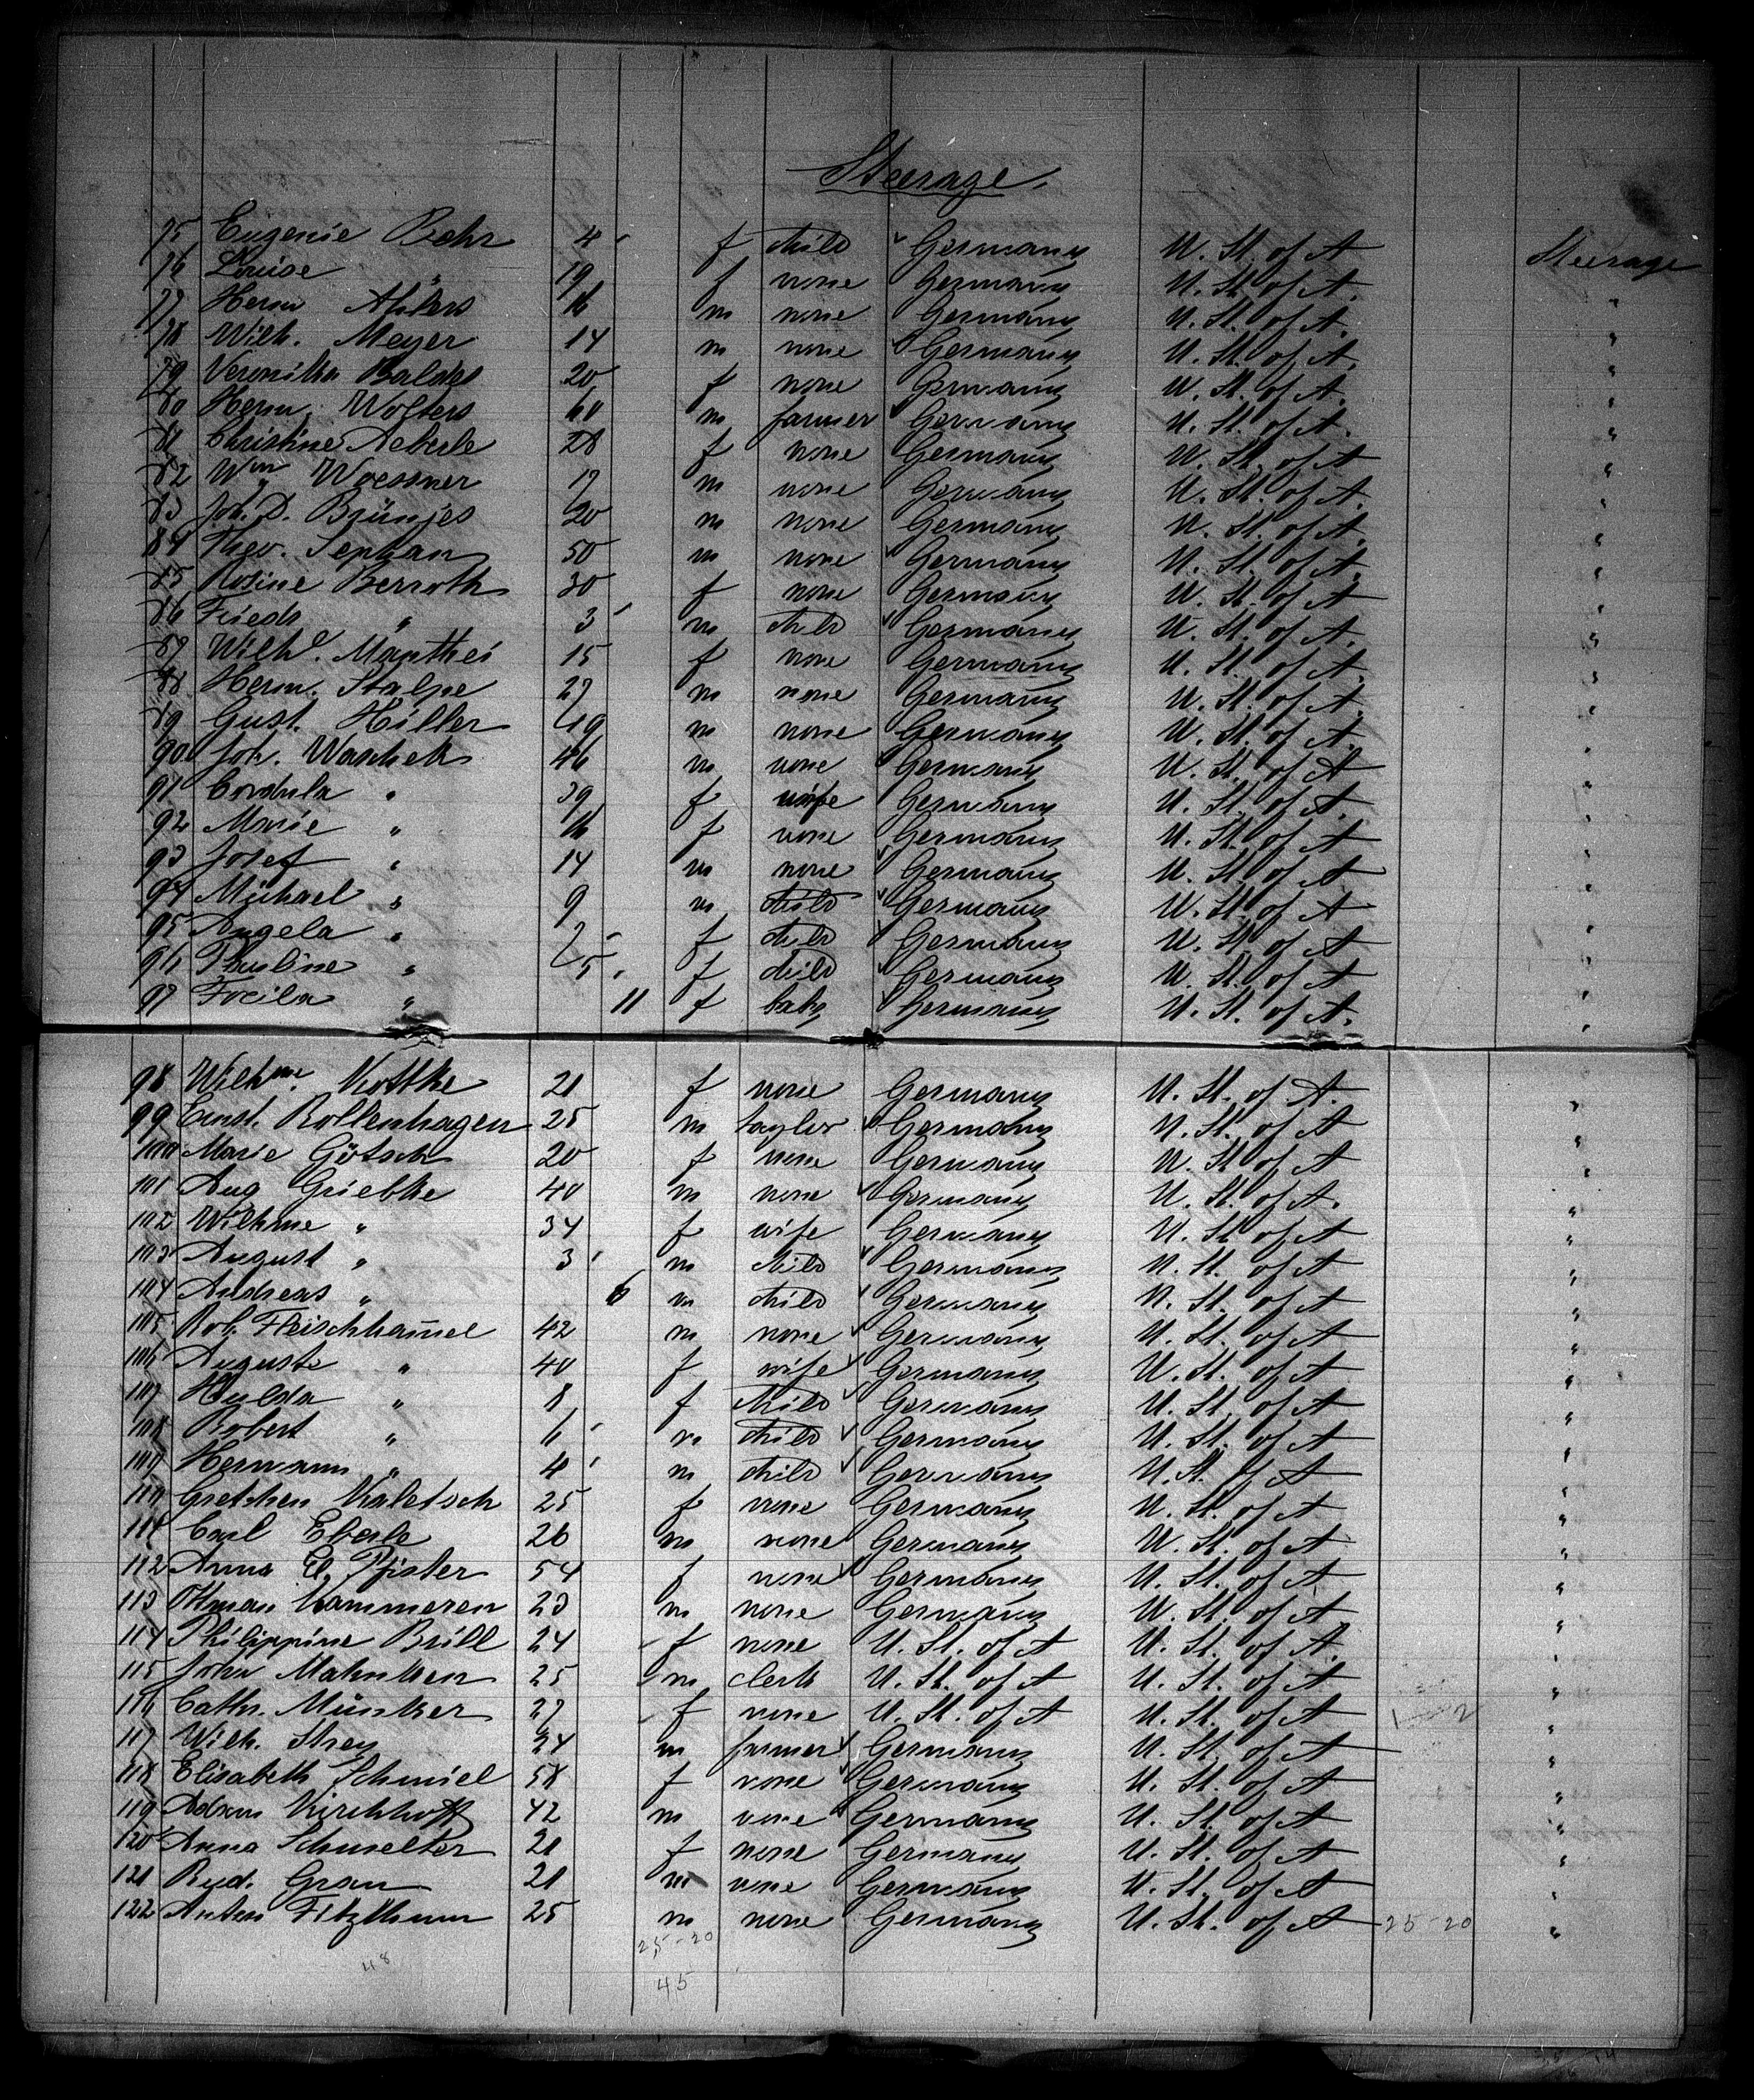 Steerage.
75 Eugenie Behr 4 f child Germany U. St. of A Steerage
76 Louise " 19 f none Germany U. St. of A. "
77 Herm Ahlers 16 m none Germany U. St. of A. "
78 Wilh. Meyer 14 m none Germany U. St. of A. "
79 Veronika 20 f none Germany U. St. of A. "
80 Herm. Wolters 60 m farmer Germany U. St. of A. "
81 Christine Aeberle 28 f none Germany U. St. of A "
82 Wm Woessner 17 m none Germany U. St. of A. "
83 Joh. D. Brünjes 20 m none Germany U. St. of A. "
84 Theo. 50 m none Germany U. St. of A. "
85 Rosine Berroth 30 f none Germany U. St. of A "
86 Friedr " 3 m child Germany U. St. of A. "
87 Wilhe. Manthei 15 f none Germany U. St. of A. "
88 Herm. Stalpe 27 m none Germany U. St. of A. "
89 Gust. Hiller 49 m none Germany U. St. of A. "
90 Joh. Waschek 46 m none Germany U. St. of A "
91 Cordula " 39 f wife Germany U. St. of A. "
92 Marie " 16 f none Germany U. St. of A "
93 Josef " 14 m none Germany U. St. of A "
94 Michael " 9 m child Germany U. St. of A "
95 Angela " 7 f child Germany U. St. of A "
96 Pauline " 5 f child Germany U. St. of A "
97 " 11 f baby Germany U. St. of A. "
98 Wilhme. Kottke 21 f none Germany U. St. of A. "
99 Ernst. Rollenhagen 25 m taylor Germany U. St. of A "
100 Marie Götsch 20 f none Germany U. St. of A "
101 Aug Griebke 40 m none Germany U. St. of A. "
102 Wilhme " 34 f wife Germany U. St. of A "
103 August " 3 m child Germany U. St. of A "
104 Andreas " 6 m child Germany U. St. of A "
105 Rob. Fleischhamel 42 m none Germany U. St. of A "
106 Auguste " 40 f wife Germany U. St. of A "
107 Hulda " 8 f child Germany U. St. of A "
108 Robert " 6 m child Germany U. St. of A "
109 Hermann " 4 m child Germany U. St. of A "
110 Gretchen Kaletsch 25 f none Germany U. St. of A "
111 Carl Eberle 26 m none Germany U. St. of A "
112 Anna E. Pfister 54 f none Germany U. St. of A "
113 Otmar Kammeren 23 m none Germany U. St. of A "
114 Philippine Brill 24 f none U. St. of A U. St. of A. "
115 John Mahnken 25 m clerk U. St. of A U. St. of A "
116 Cath. Münker 27 f none U. St. of A U. St. of A 1 2 "
117 Wilh. Strey 24 m farmer Germany U. St. of A "
118 Elisabeth Schmiel 58 f none Germany U. St. of A "
119 Adam Kirchhoff 42 m none Germany U. St. of A "
120 Anna Schmelter 21 f none Germany U. St. of A "
121 Rud. Grau 21 m none Germany U. St. of A "
122 Anton Fitzthum 25 m none Germany U. St. of A 25-20 "
25-20
48
45